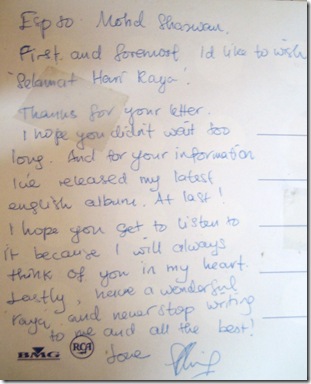 Esp to Mohd Shazwan.
First and foremost I'd like to wish
'Selamat Hari Raya'
Thanks for your letter.
I hope you didn't wait too
long. And for your information
I've released my latest
english album. At last!
I hope you get to listen to
it because I will always
think of you in my heart.
Lastly, have a wonderful
raya and never stop writing
to me and all the best!
Love
BMG
RCA